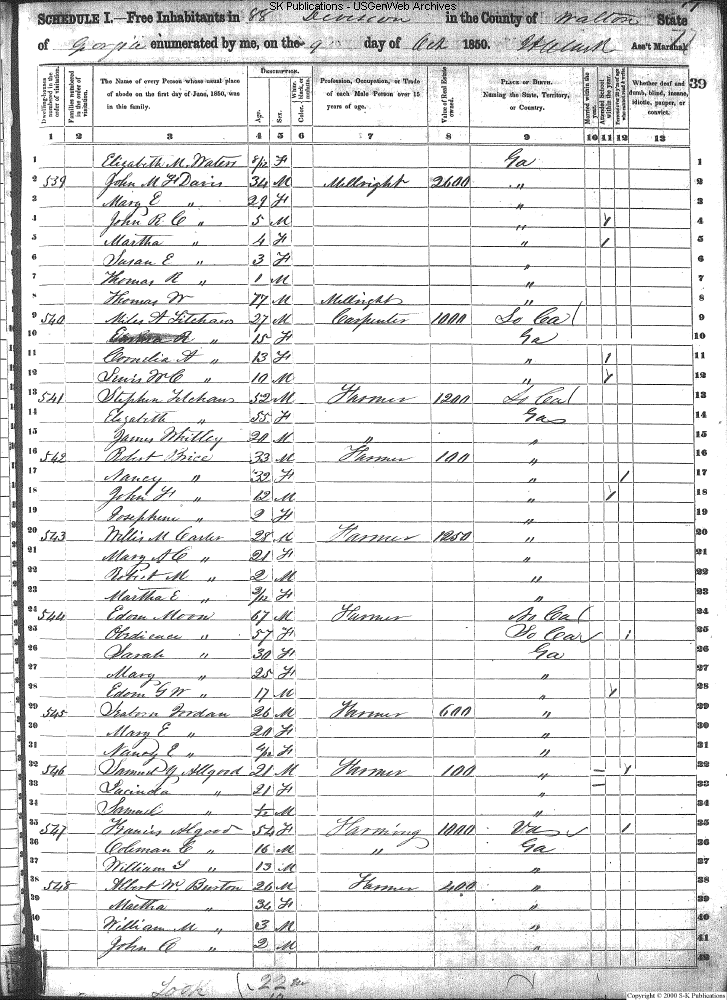 SK Publications - USGenWeb Archives
SCHEDULE I.—Free Inhabitants in 88 Division in the County of Walton State
of Georgia enumerated by me, on the 9 day of Oct 1850. Ass't Marshal
39
Dwelling-houses numbered in the order of visitation.
Families numbered in the order of visitation.
The Name of every Person whose usual place of abode on the first day of June, 1850, was in this family.
Description.
Age.
Sex.
Color, White, black, or mulatto.
Profession, Occupation, or Trade of each Male Person over 15 years of age.
Value of Real Estate owned.
Place of Birth. Naming the State, Territory, or Country.
Married within the year.
Attended School within the year.
Persons over 20 y'rs of age who cannot read & write.
Whether deaf and dumb, blind, insane, idiotic, pauper, or convict.
1 2 3 4 5 6 7 8 9 10 11 12 13
1 Elizabeth M. Waters 8/12 F Ga 1
2 539 John M F Davis 34 M Millright 2600 " 2
3 Mary E " 29 F " 3
4 John R C " 5 M " / 4
5 Martha " 4 F " / 5
6 Susan E " 3 F " 6
7 Thomas R " 1 M " 7
8 Thomas W 77 M Millright " 8
9 540 Miles A 27 M Carpenter 1000 So Ca 9
10 R " 15 F Ga 10
11 Cornelia A " 13 F " / 11
12 Lewis W C " 10 M " / 12
13 541 Stephen 52 M Farmer 1200 So Ca 13
14 Elizabeth " 55 F Ga 14
15 James Whitley 20 M " " 15
16 542 Robert Brice 33 M Farmer 100 " 16
17 Nancy " 32 F " / 17
18 John F " 12 M " / 18
19 Josephine " 2 F " 19
20 543 Willis M Carter 28 M Farmer 1250 " 20
21 Mary A C " 21 F " 21
22 Robert M " 2 M " 22
23 Martha E " 2/12 F " 23
24 544 Edom Moon 67 M Farmer No Ca 24
25 Obedience " 57 F So Car / 25
26 Sarah " 30 F Ga 26
27 Mary " 25 F " 27
28 Edom G W " 17 M " / 28
29 545 Seaborn Jordan 26 M Farmer 600 " 29
30 Mary E " 20 F " 30
31 Nancy E " 4/12 F " 31
32 546 Samuel Y Allgood 21 M Farmer 100 " / 32
33 Lucinda " 21 F " 33
34 Samuel " M " 34
35 547 Francis Algood 54 F Farming 1000 Va / 35
36 Coleman C " 16 M " Ga 36
37 William Y " 13 M " 37
38 548 Albert W Burton 26 M Farmer 400 " 38
39 Martha " 34 F " 39
40 William M " 3 M " 40
41 John C " 2 M " 41
42
22
Copyright © 2000 S-K Publications